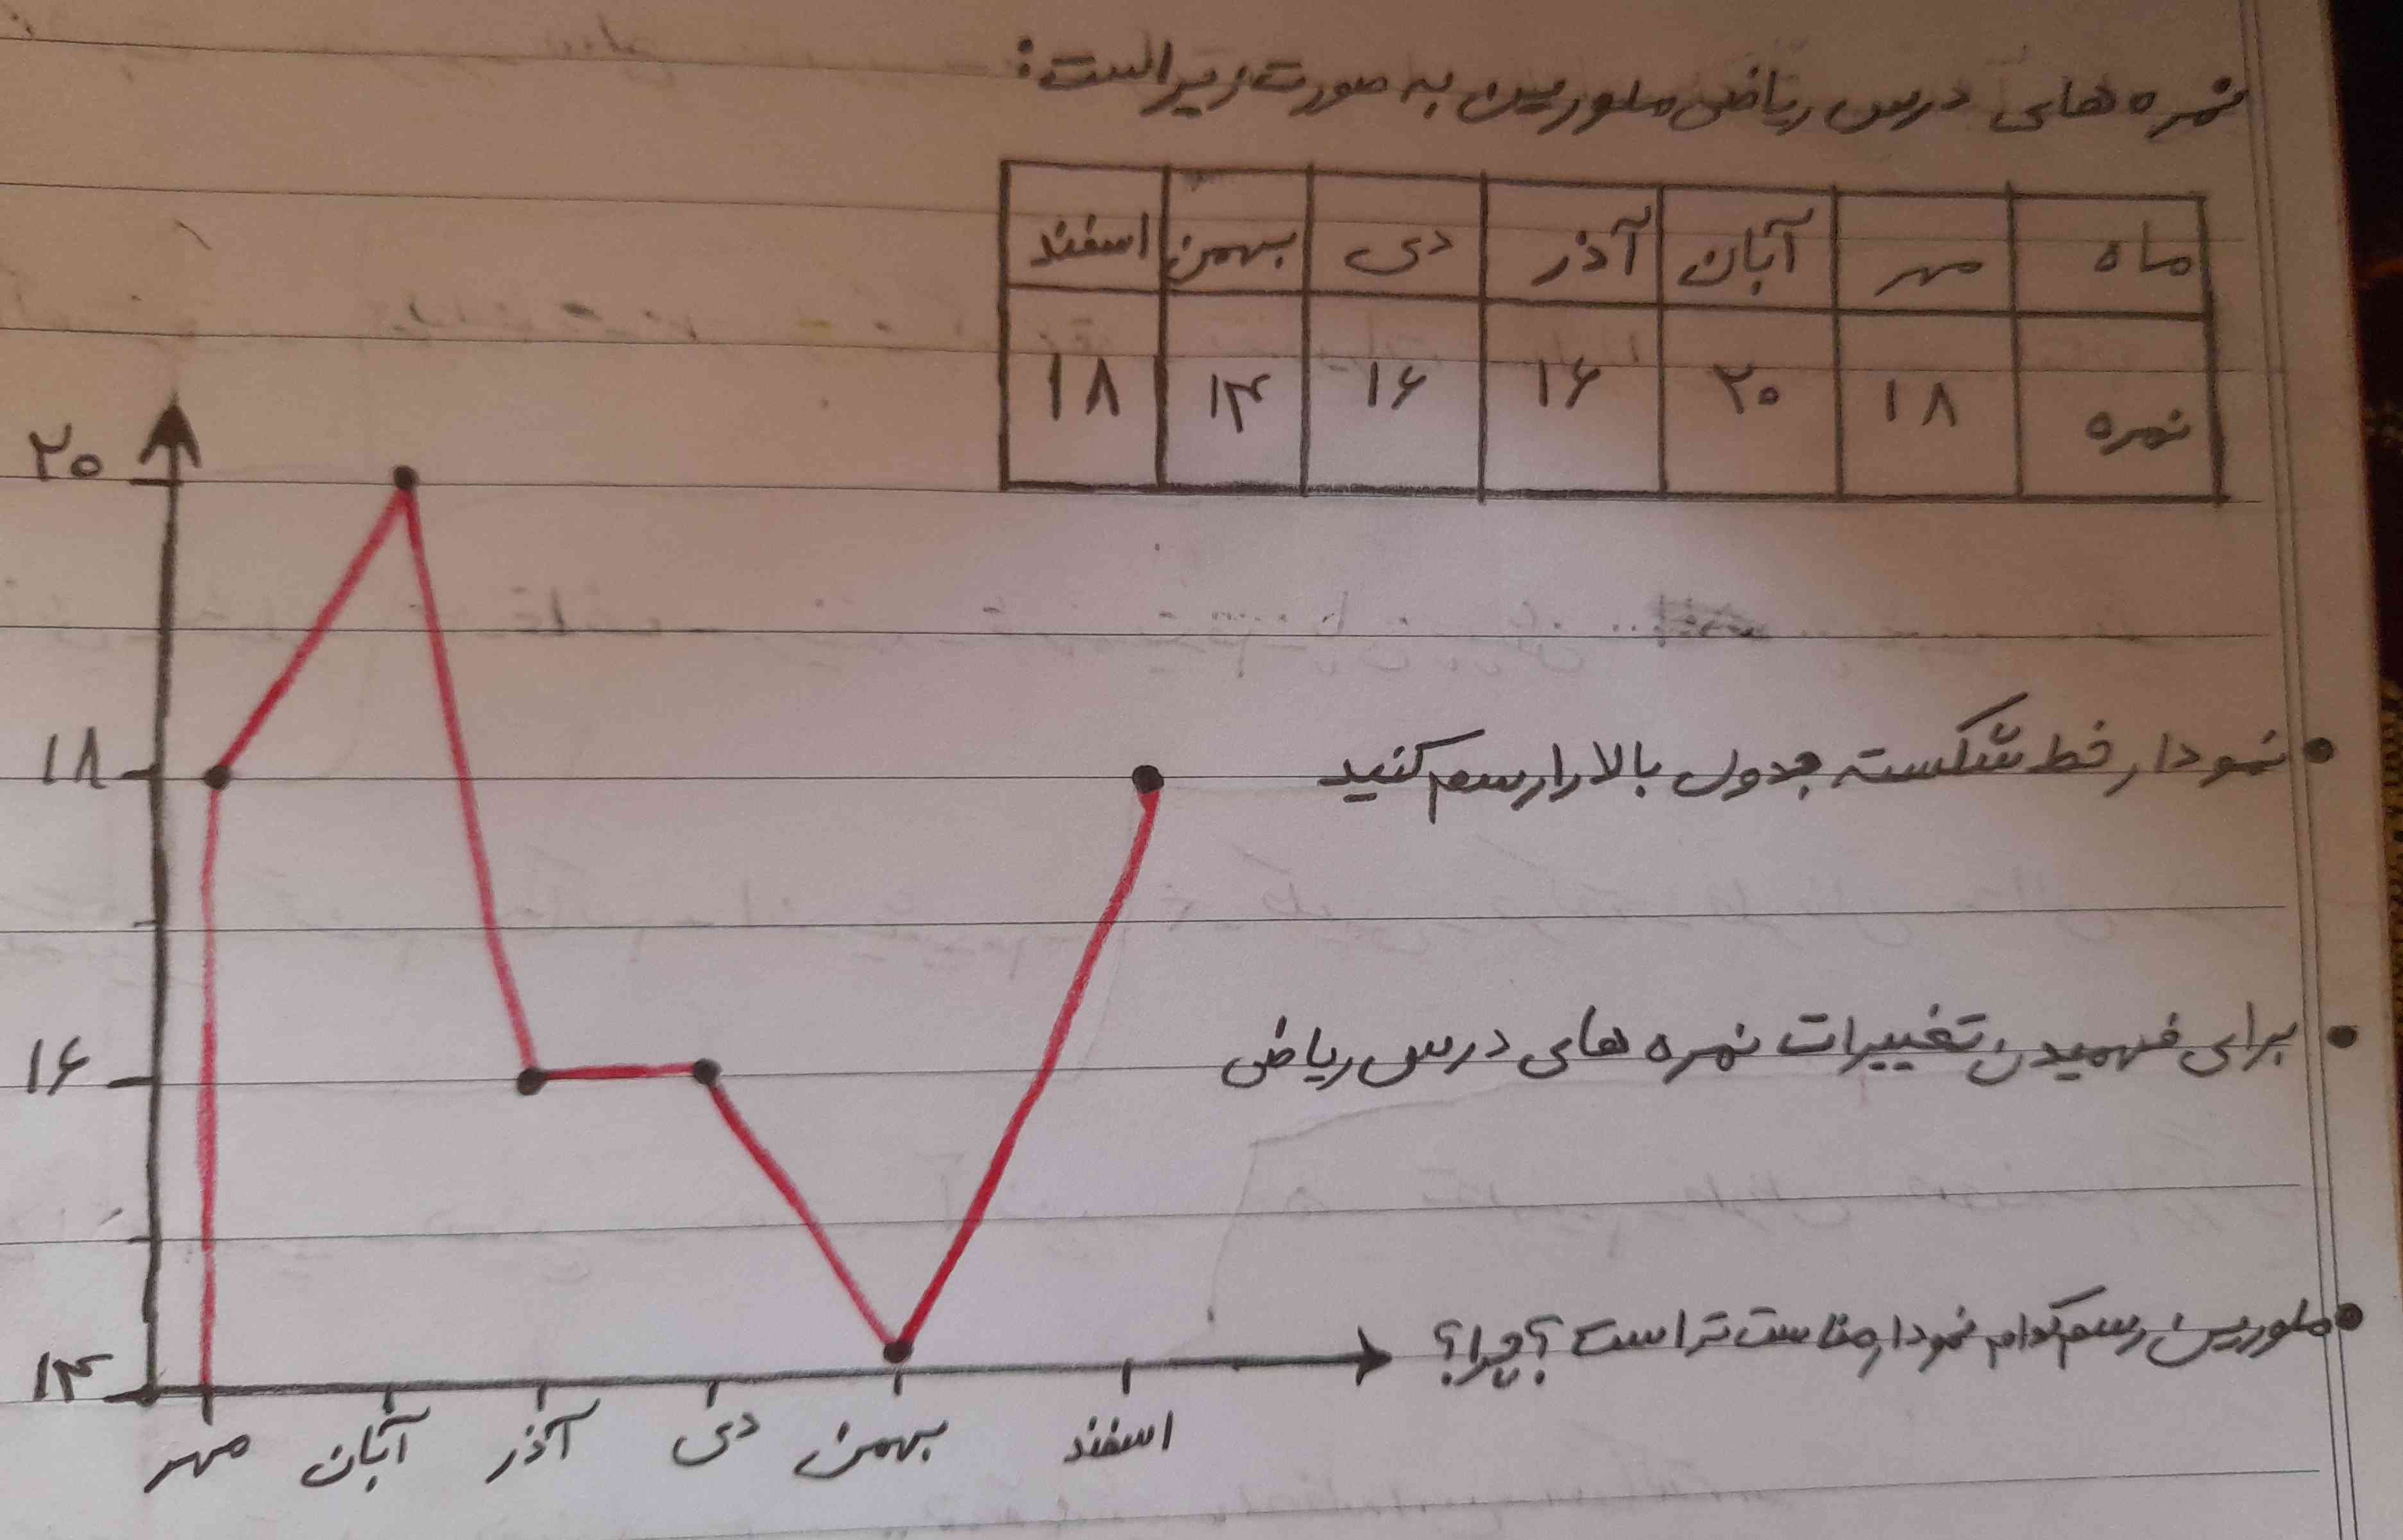 نمره های درس ریاضی ملورین به صورت زیر است:
ماه مهر آبان آذر دی بهمن اسفند
نمره ۱۸ ۲۰ ۱۶ ۱۶ ۱۴ ۱۸
۲۰
• نمودار خط شکسته جدول بالا را رسم کنید
۱۸
• برای فهمیدن تغییرات نمره های درس ریاضی
۱۶
• ملورین رسم کدام نمودار مناسب تر است؟ چرا؟
۱۴
مهر آبان آذر دی بهمن اسفند